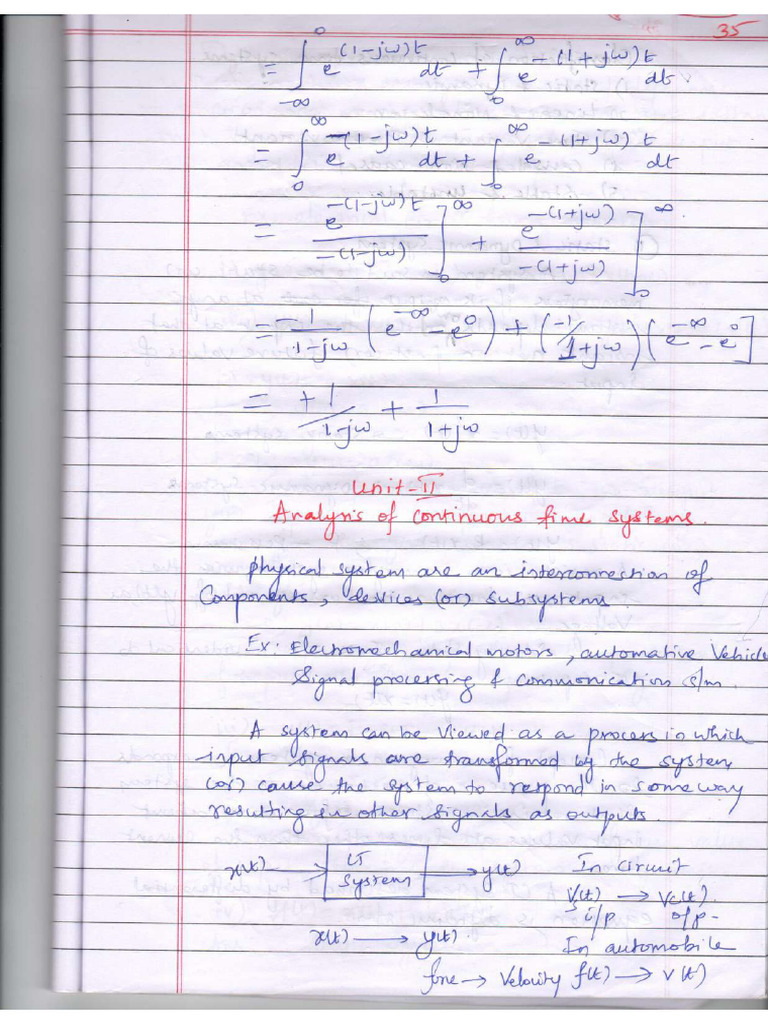 35
= ∫_{-∞}^{0} e^{(1-jω)t} dt + ∫_{0}^{∞} e^{-(1+jω)t} dt
= ∫_{0}^{∞} e^{-(1-jω)t} dt + ∫_{0}^{∞} e^{-(1+jω)t} dt
= e^{-(1-jω)t} / -(1-jω) ]_{0}^{∞} + e^{-(1+jω)} / -(1+jω) ]_{0}^{∞}
= -1/(1-jω) (e^{-∞} - e^{0}) + (-1/1+jω) (e^{-∞} - e^{0}]
= +1/(1-jω) + 1/(1+jω)
Unit-II
Analysis of continuous time systems.
physical system are an interconnection of
Components, devices (or) subsystems
Ex: Electromechanical motors, automative Vehicle
Signal processing & communication s/m.
A system can be viewed as a process in which
input signals are transformed by the system
(or) cause the system to respond in some way
resulting in other signals as outputs.
x(t) → CT System → y(t) In circuit
Vs(t) → Vc(t).
i/p. o/p-
x(t) → y(t) In automobile
force → Velocity f(t) → v(t)